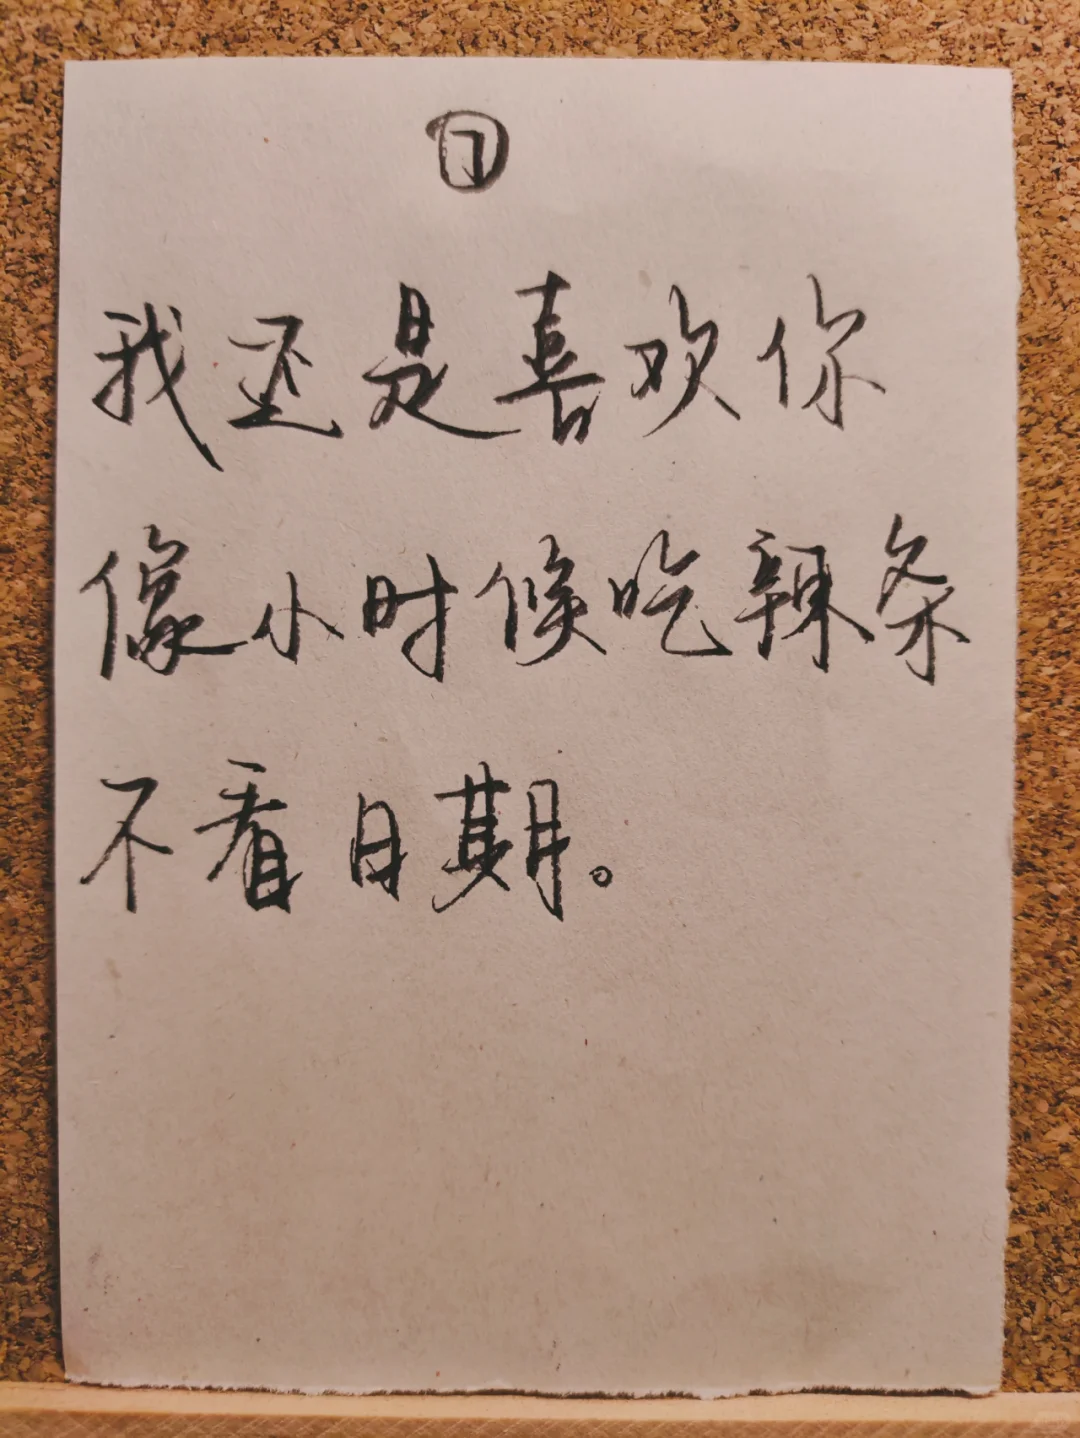 ⑦
我还是喜欢你
像小时候吃辣条
不看日期。